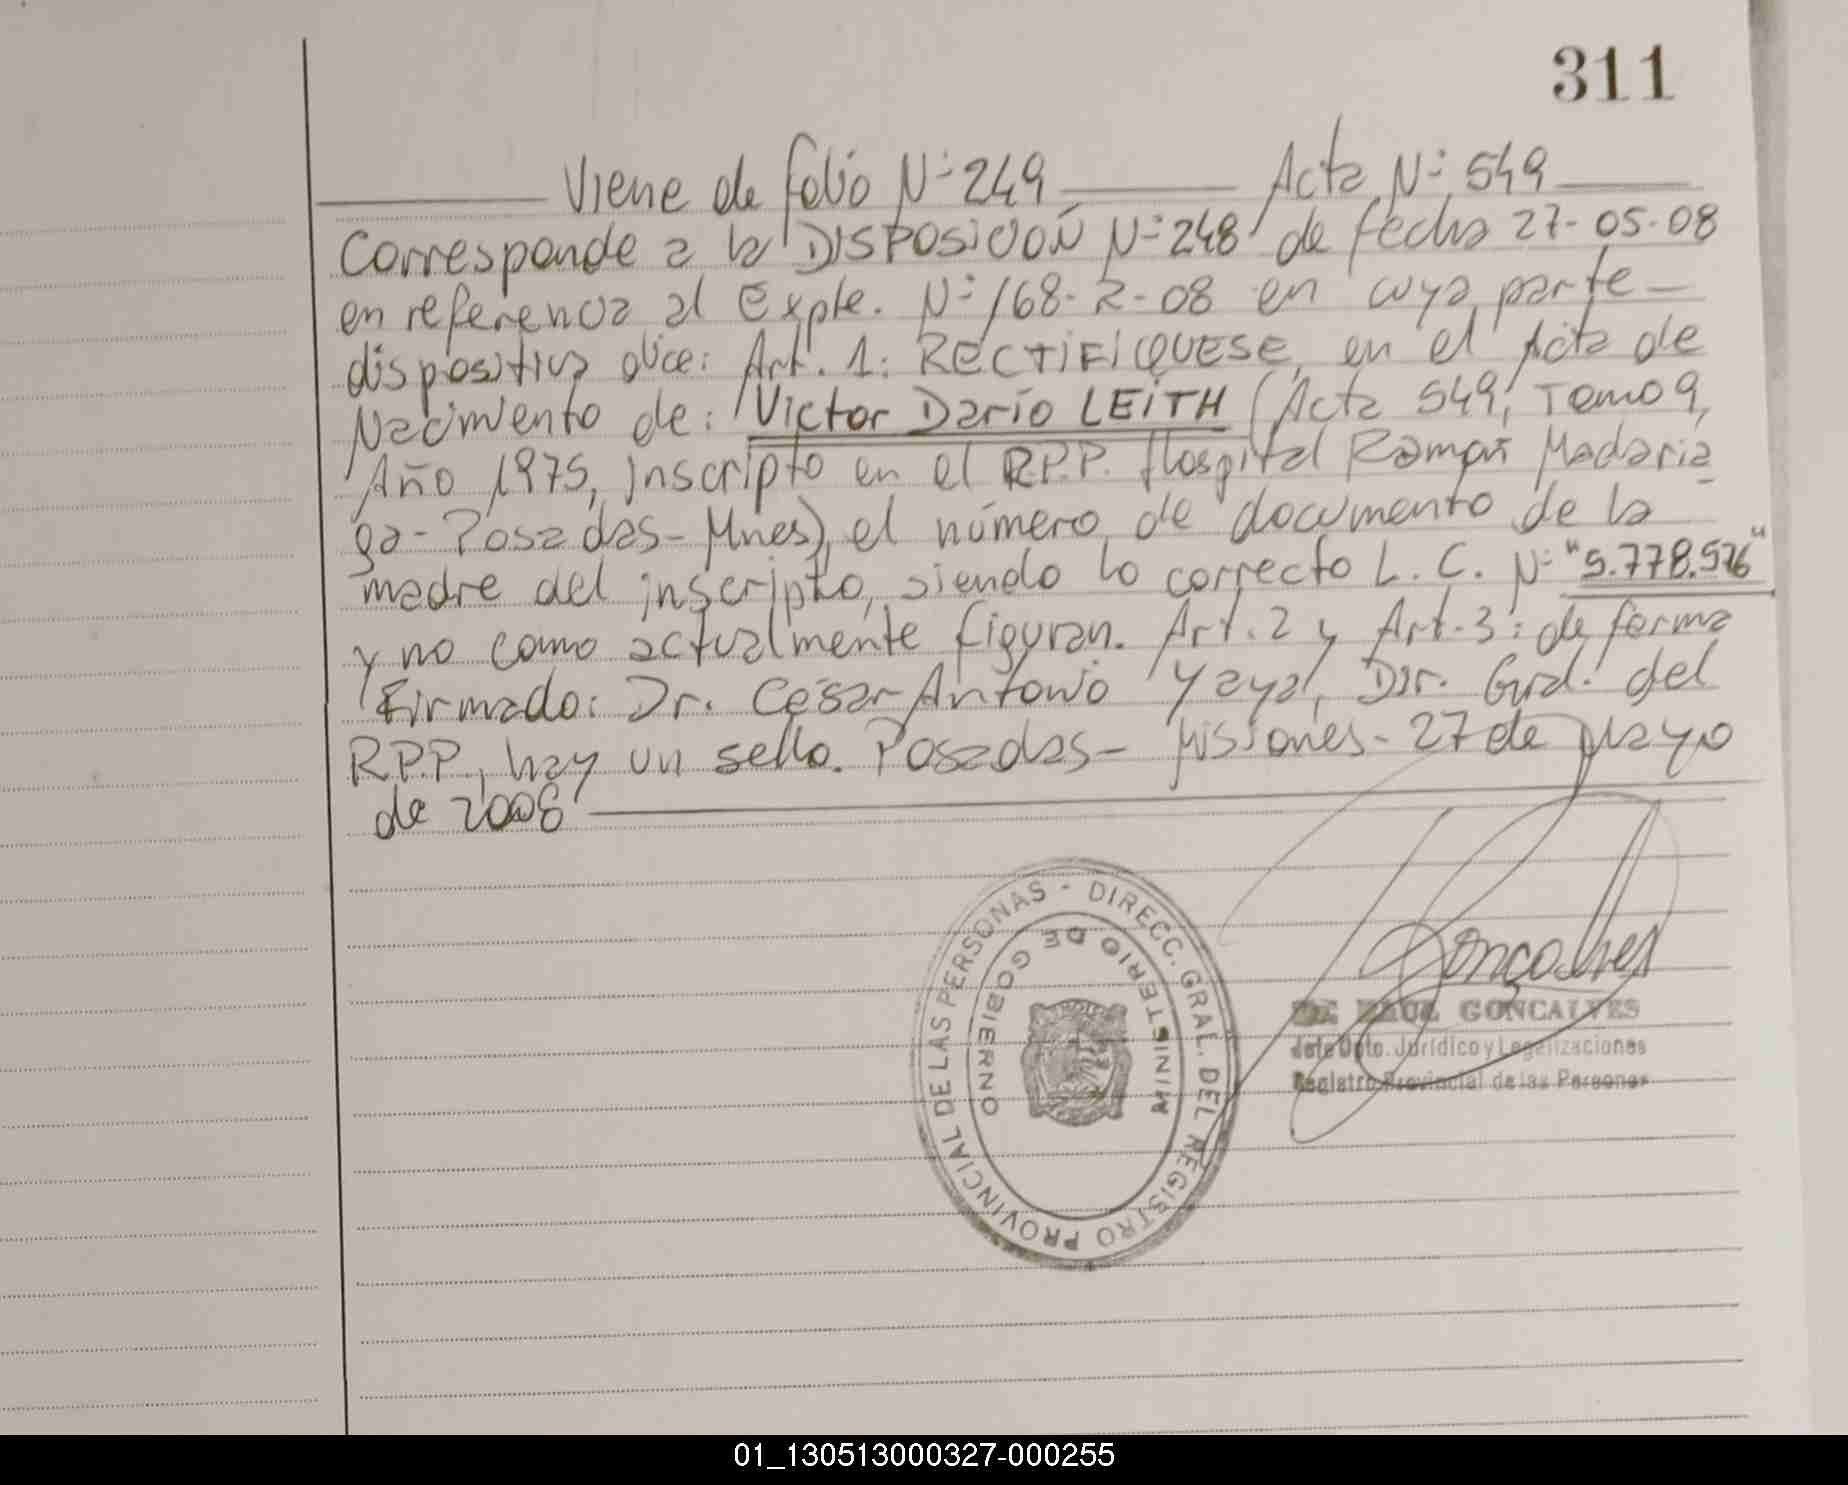 311
Viene de folio Nº 249 Acta Nº 549
Corresponde a la DISPOSICION Nº 248 de fecha 27-05-08
en referencia al Expte. Nº 168-R-08 en cuya parte
dispositiva dice: Art. 1: RECTIFIQUESE, en el Acta de
Nacimiento de: Victor Dario LEITH (Acta 549, Tomo 9,
Año 1975, inscripto en el R.P.P. Hospital Ramon Madaria
ga - Posadas - Mnes), el número de documento de la
madre del inscripto, siendo lo correcto L. C. Nº "5.778.576"
y no como actualmente figuran. Art. 2 y Art. 3: de forma
Firmado: Dr. César Antonio Yaya, Dir. Gral. del
R.P.P., hay un sello. Posadas - Misiones - 27 de Mayo
de 2008
DIRECC. GRAL. DEL REGISTRO PROVINCIAL DE LAS PERSONAS -
MINISTERIO DE GOBIERNO
Gonçalves
RAUL GONCALVES
Jefe Dpto. Jurídico y Legalizaciones
Registro Provincial de las Personas
01_130513000327-000255